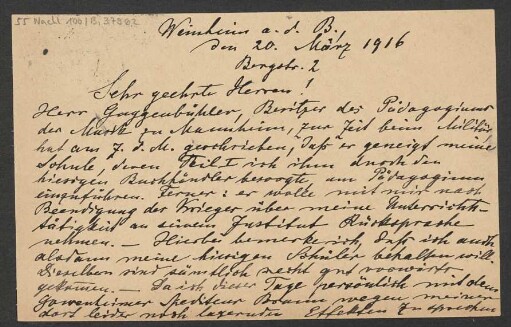 55 Nachl 100/B, 37882
Weinheim a. d. B.,
den 20. März 1916
Bergstr. 2
Sehr geehrte Herren!
Herr Guggenbühler, Besitzer des Pädagogiums
der Musik zu Mannheim, zur Zeit beim Militär,
hat am 7. d. M. geschrieben, daß er geneigt meine
Schule, deren Teil I ich ihm durch den
hiesigen Buchhändler besorgte, am Pädagogium
einzuführen. Ferner: er wolle mit mir nach
Beendigung des Krieges über meine Unterrichts-
tätigkeit an seinem Institut Rücksprache
nehmen. – Hierbei bemerke ich, daß ich auch
alsdann meine hiesigen Schüler behalten will.
Dieselben sind sämtlich recht gut vorwärts
gekommen. – Da ich dieser Tage persönlich mit dem
Spediteur Braun wegen meiner
dort leider noch lagernden Effekten zu sprechen